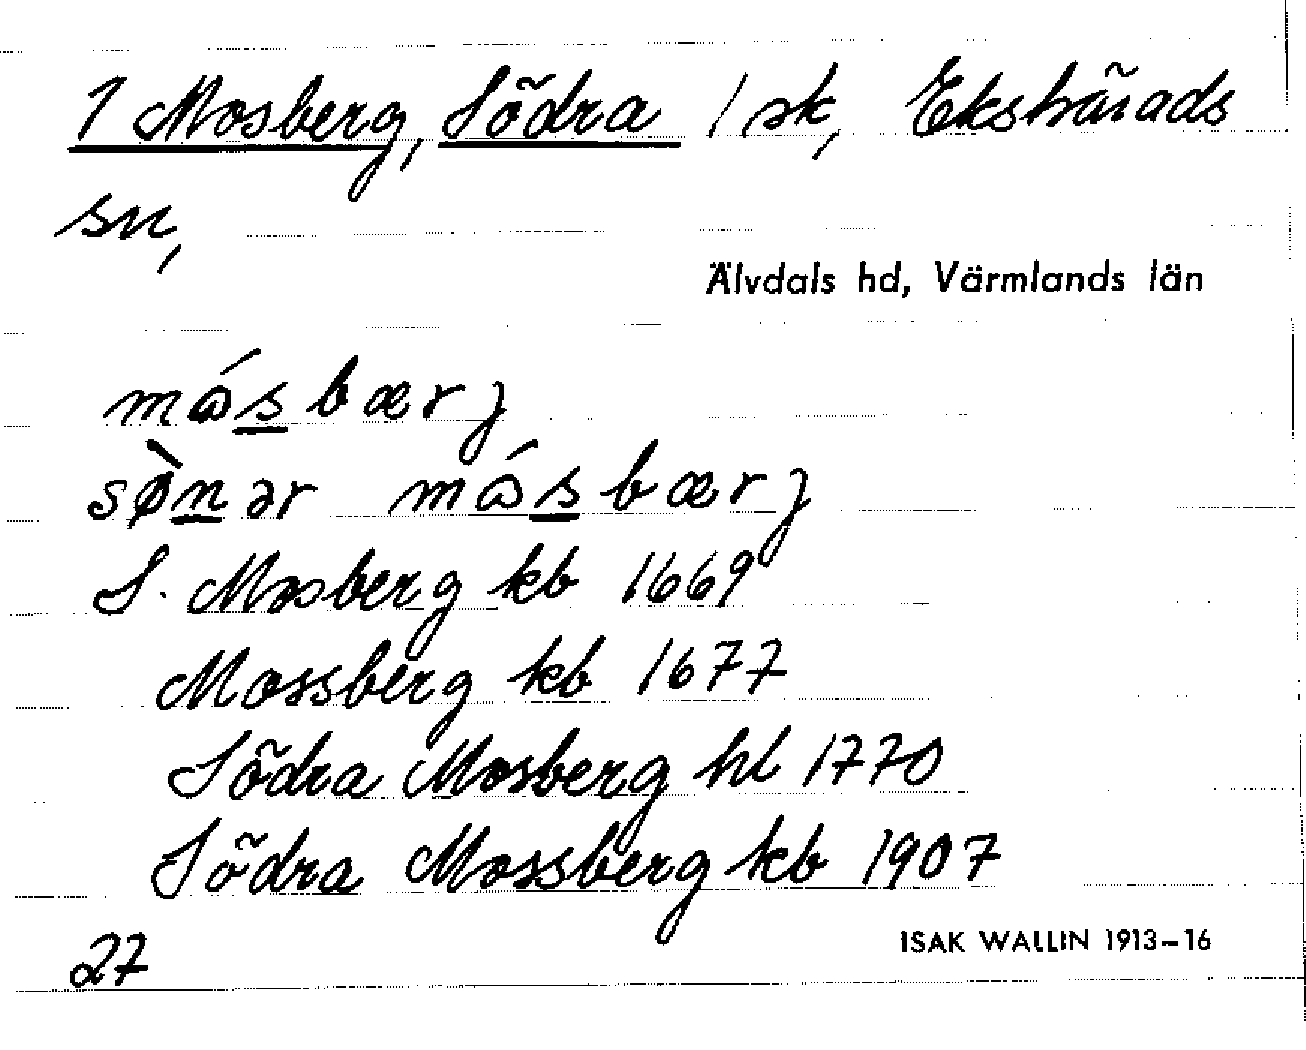 1 Mosberg, Södra / sk, Ekshärads
sn,
Älvdals hd, Värmlands län
mɷ́sbærj
sø̀nər mɷ́sbærj
S. Mosberg kb 1669
Mossberg kb 1677
Södra Mosberg hl 1770
Södra Mossberg kb 1907
27
ISAK WALLIN 1913-16